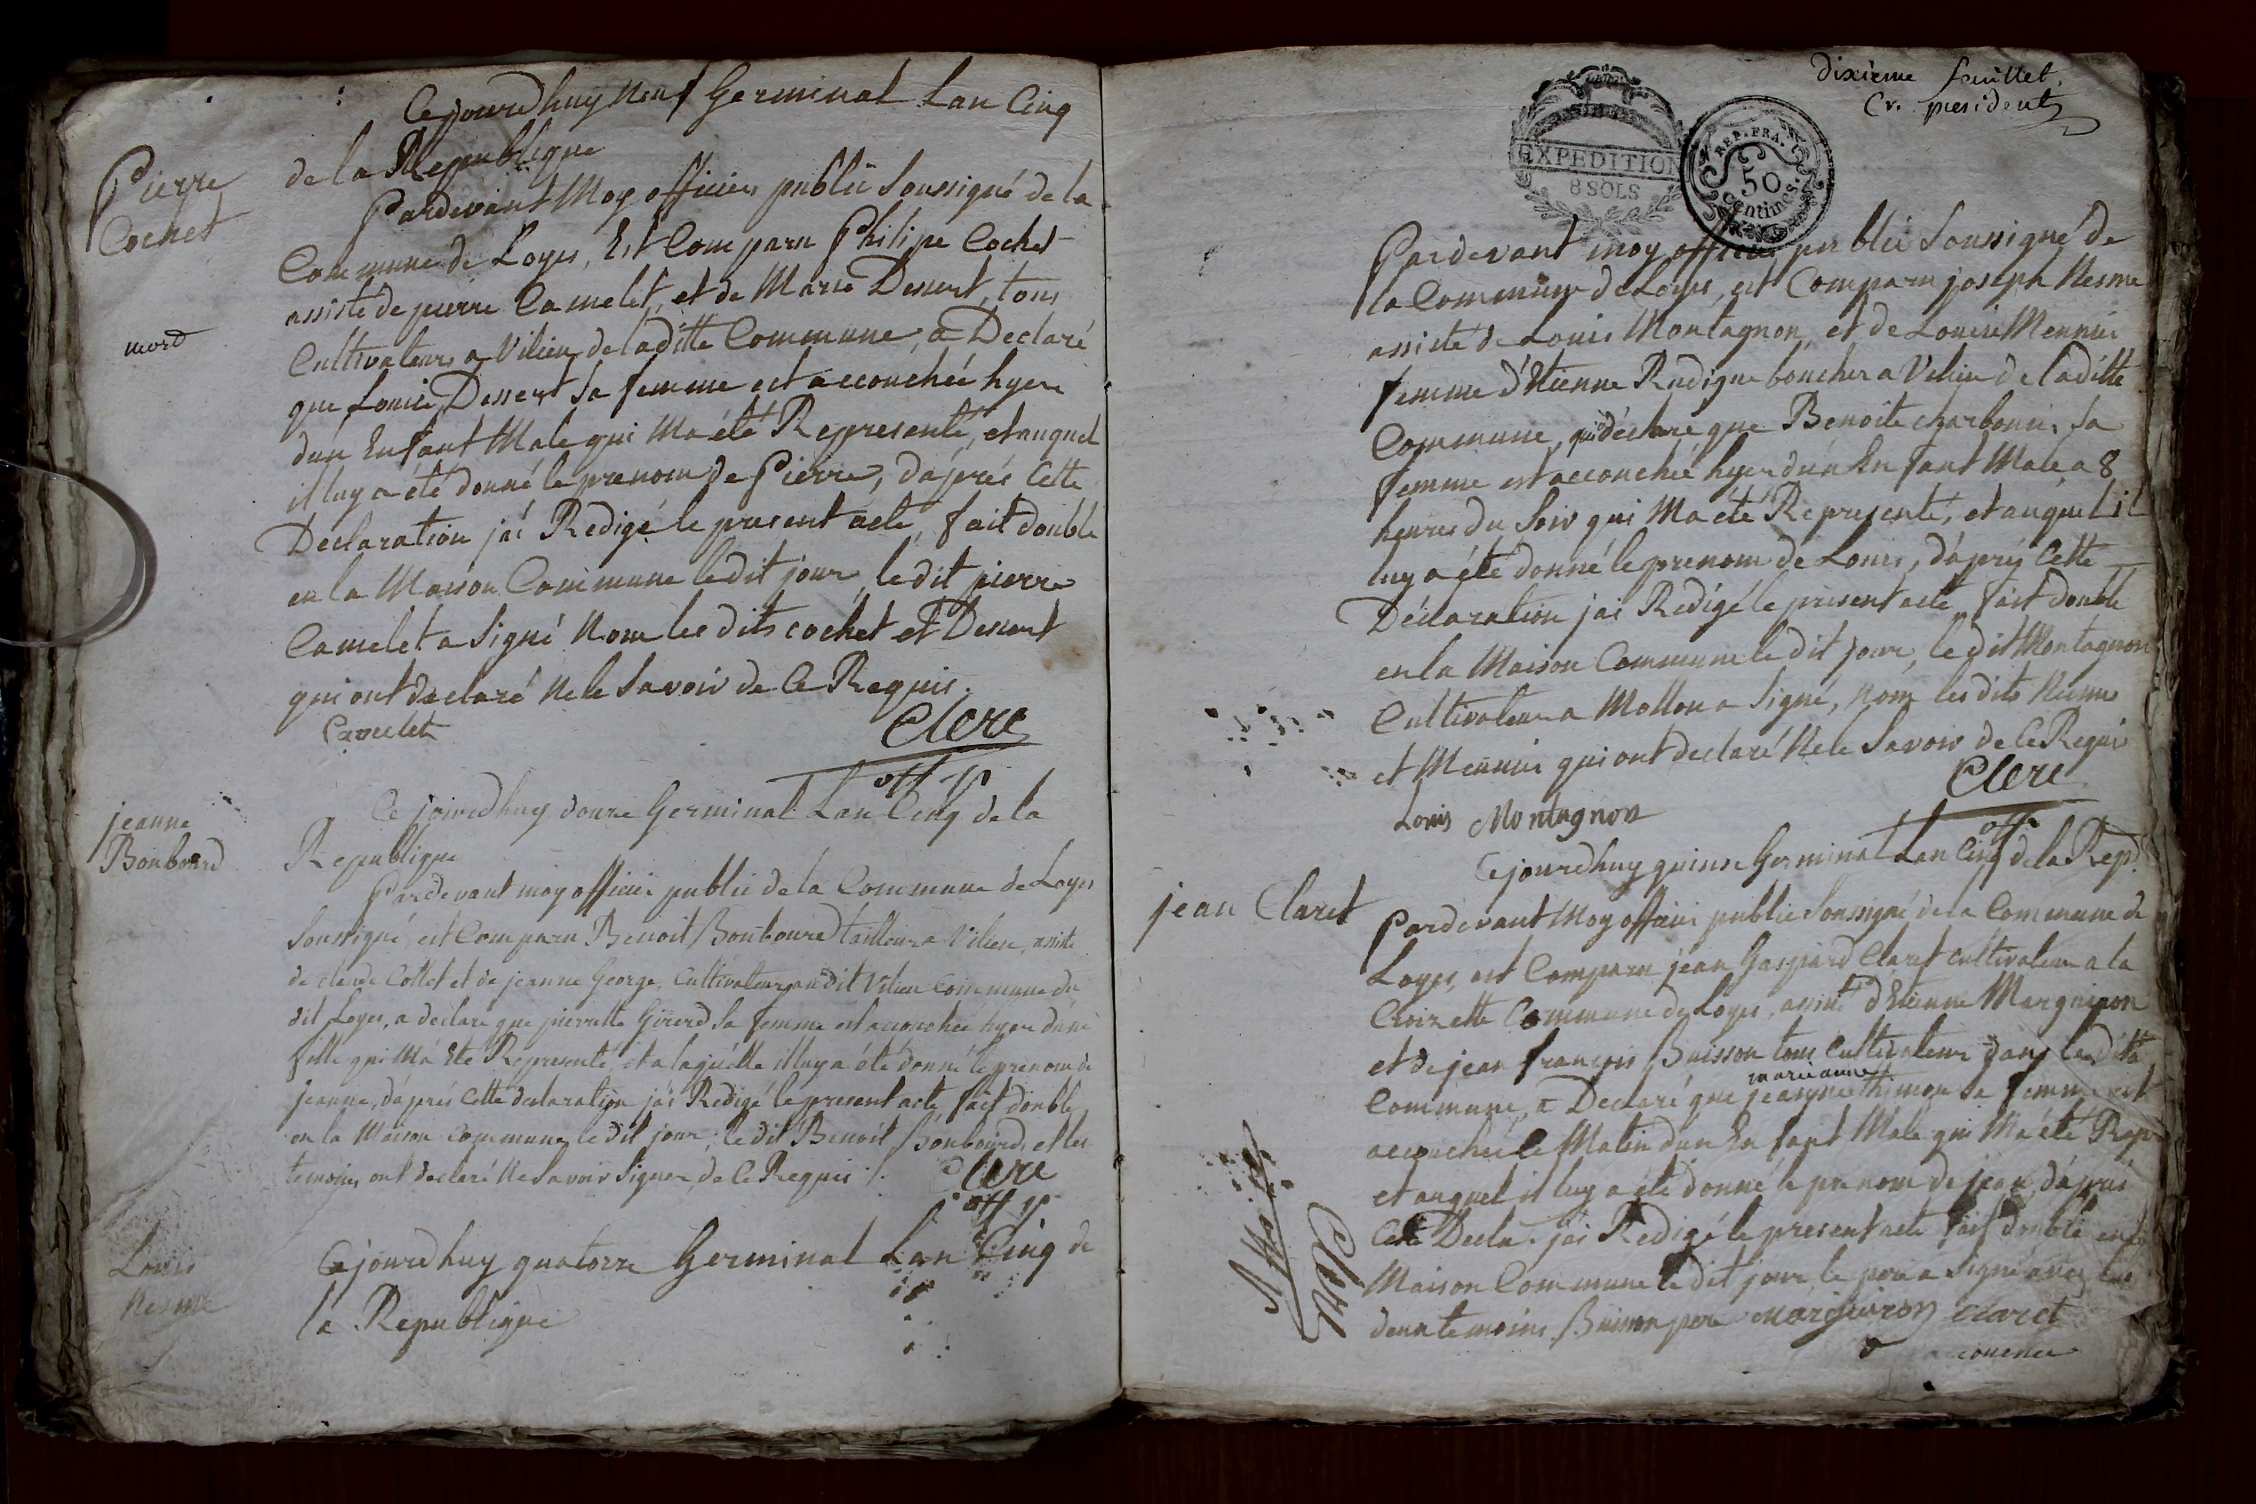 Ce jourdhuy neuf Germinal Lan Cinq
de la Republique
Pierre
Cochet
mord
Pardevant Moy officier public Soussigné de la
Commune de Loyes, Est Comparu Philipe Cochet
assisté de pierre Camelet, et de Marie Desert, tous
Cultivateurs a Vilieu de laditte Commune, a Declaré
que Louise Dessert Sa femme est accouchée hyer
dun Enfant Male qui Ma été Representé, et auquel
il luy a été donné le prenom de Pierre, d'aprés Cette
Declaration jai Redigé le present acte, fait double
en la Maison Commune le dit jour, le dit pierre
Camelet a Signé Non les dits cochet et Dessert
qui ont declaré Ne le Savoir de Ce Requis.
Camelet
Clerc
off p
jeanne
Bonbourd
Ce jourdhuy douze Germinal Lan Cinq de la
Republique
Pardevant moy officier public de la Commune de Loyes
Soussigné, est Comparu Benoit Bonbourd tailleur a Vilieu, assisté
de claude Collet et de jeanne George, Cultivateurs au dit Vilieu Commune du
dit Loyes, a déclaré que pierrette Girerd Sa femme est accouchée hyer dune
fille qui Má Eté Representé, et a laquelle il luy a été donné le prenom de
jeanne, d'aprés Cette declaration jai Redigé le present acte, fait double
en la Maison Commune le dit jour, le dit Benoit Bonbourd, et les
temoins ont declaré Ne Savoir Signer, de Ce Requis ./.
Clerc
off p
Louis
Nesme
Ce jourdhuy quatorze Germinal Lan Cinq de
la Republique
dixieme feuillet.
Cr. president
EXPEDITION
8 SOLS
REP. FRA.
50
centimes.
Pardevant moy officier public Soussigné de
la Commune de Loyes, est Comparu joseph Nesme
assisté de Louis Montagnon, et de Louise Meunier
femme d'Etienne Rudigue boucher a Vilieu de laditte
Commune, qui a déclaré que Benoite charbonier Sa
femme est accouchée hyer dun Enfant Male a 8
heures du Soir qui Ma été Representé, et auquel il
luy a été donné le prenom de Louis, d'aprés Cette
Déclaration jai Redigé le present acte fait double
en la Maison Commune le dit jour, le dit Montagnon
Cultivateur a Mollon a Signé, Non les dits Nesme
et Meunier qui ont declaré Ne le Savoir de Ce Requis
Clerc
off p
Louis Montagnon
Ce jourdhuy quinze Germinal Lan Cinq de la Rep.
jean Claret
Pardevant Moy officier public Soussigné de la Commune de
Loyes, est Comparu jean Gaspard Claret cultivateur a la
Croizette Commune de Loyes, assisté d'Etienne Marguiron
et de jean françois Buisson tous Cultivateurs dans la ditte
marianne
Commune, a Declaré que jeanne thimon sa femme est
accouchée Ce Matin dun Enfant Male qui Ma été Repr.
et auquel il luy a été donné le prenom de jean d'aprés
Cette Decla. jai Redigé le present acte fait double en la
Maison Commune le dit jour, le pere a Signé avec les
deux temoins Buisson pere Marguiron Claret
Clerc
off p